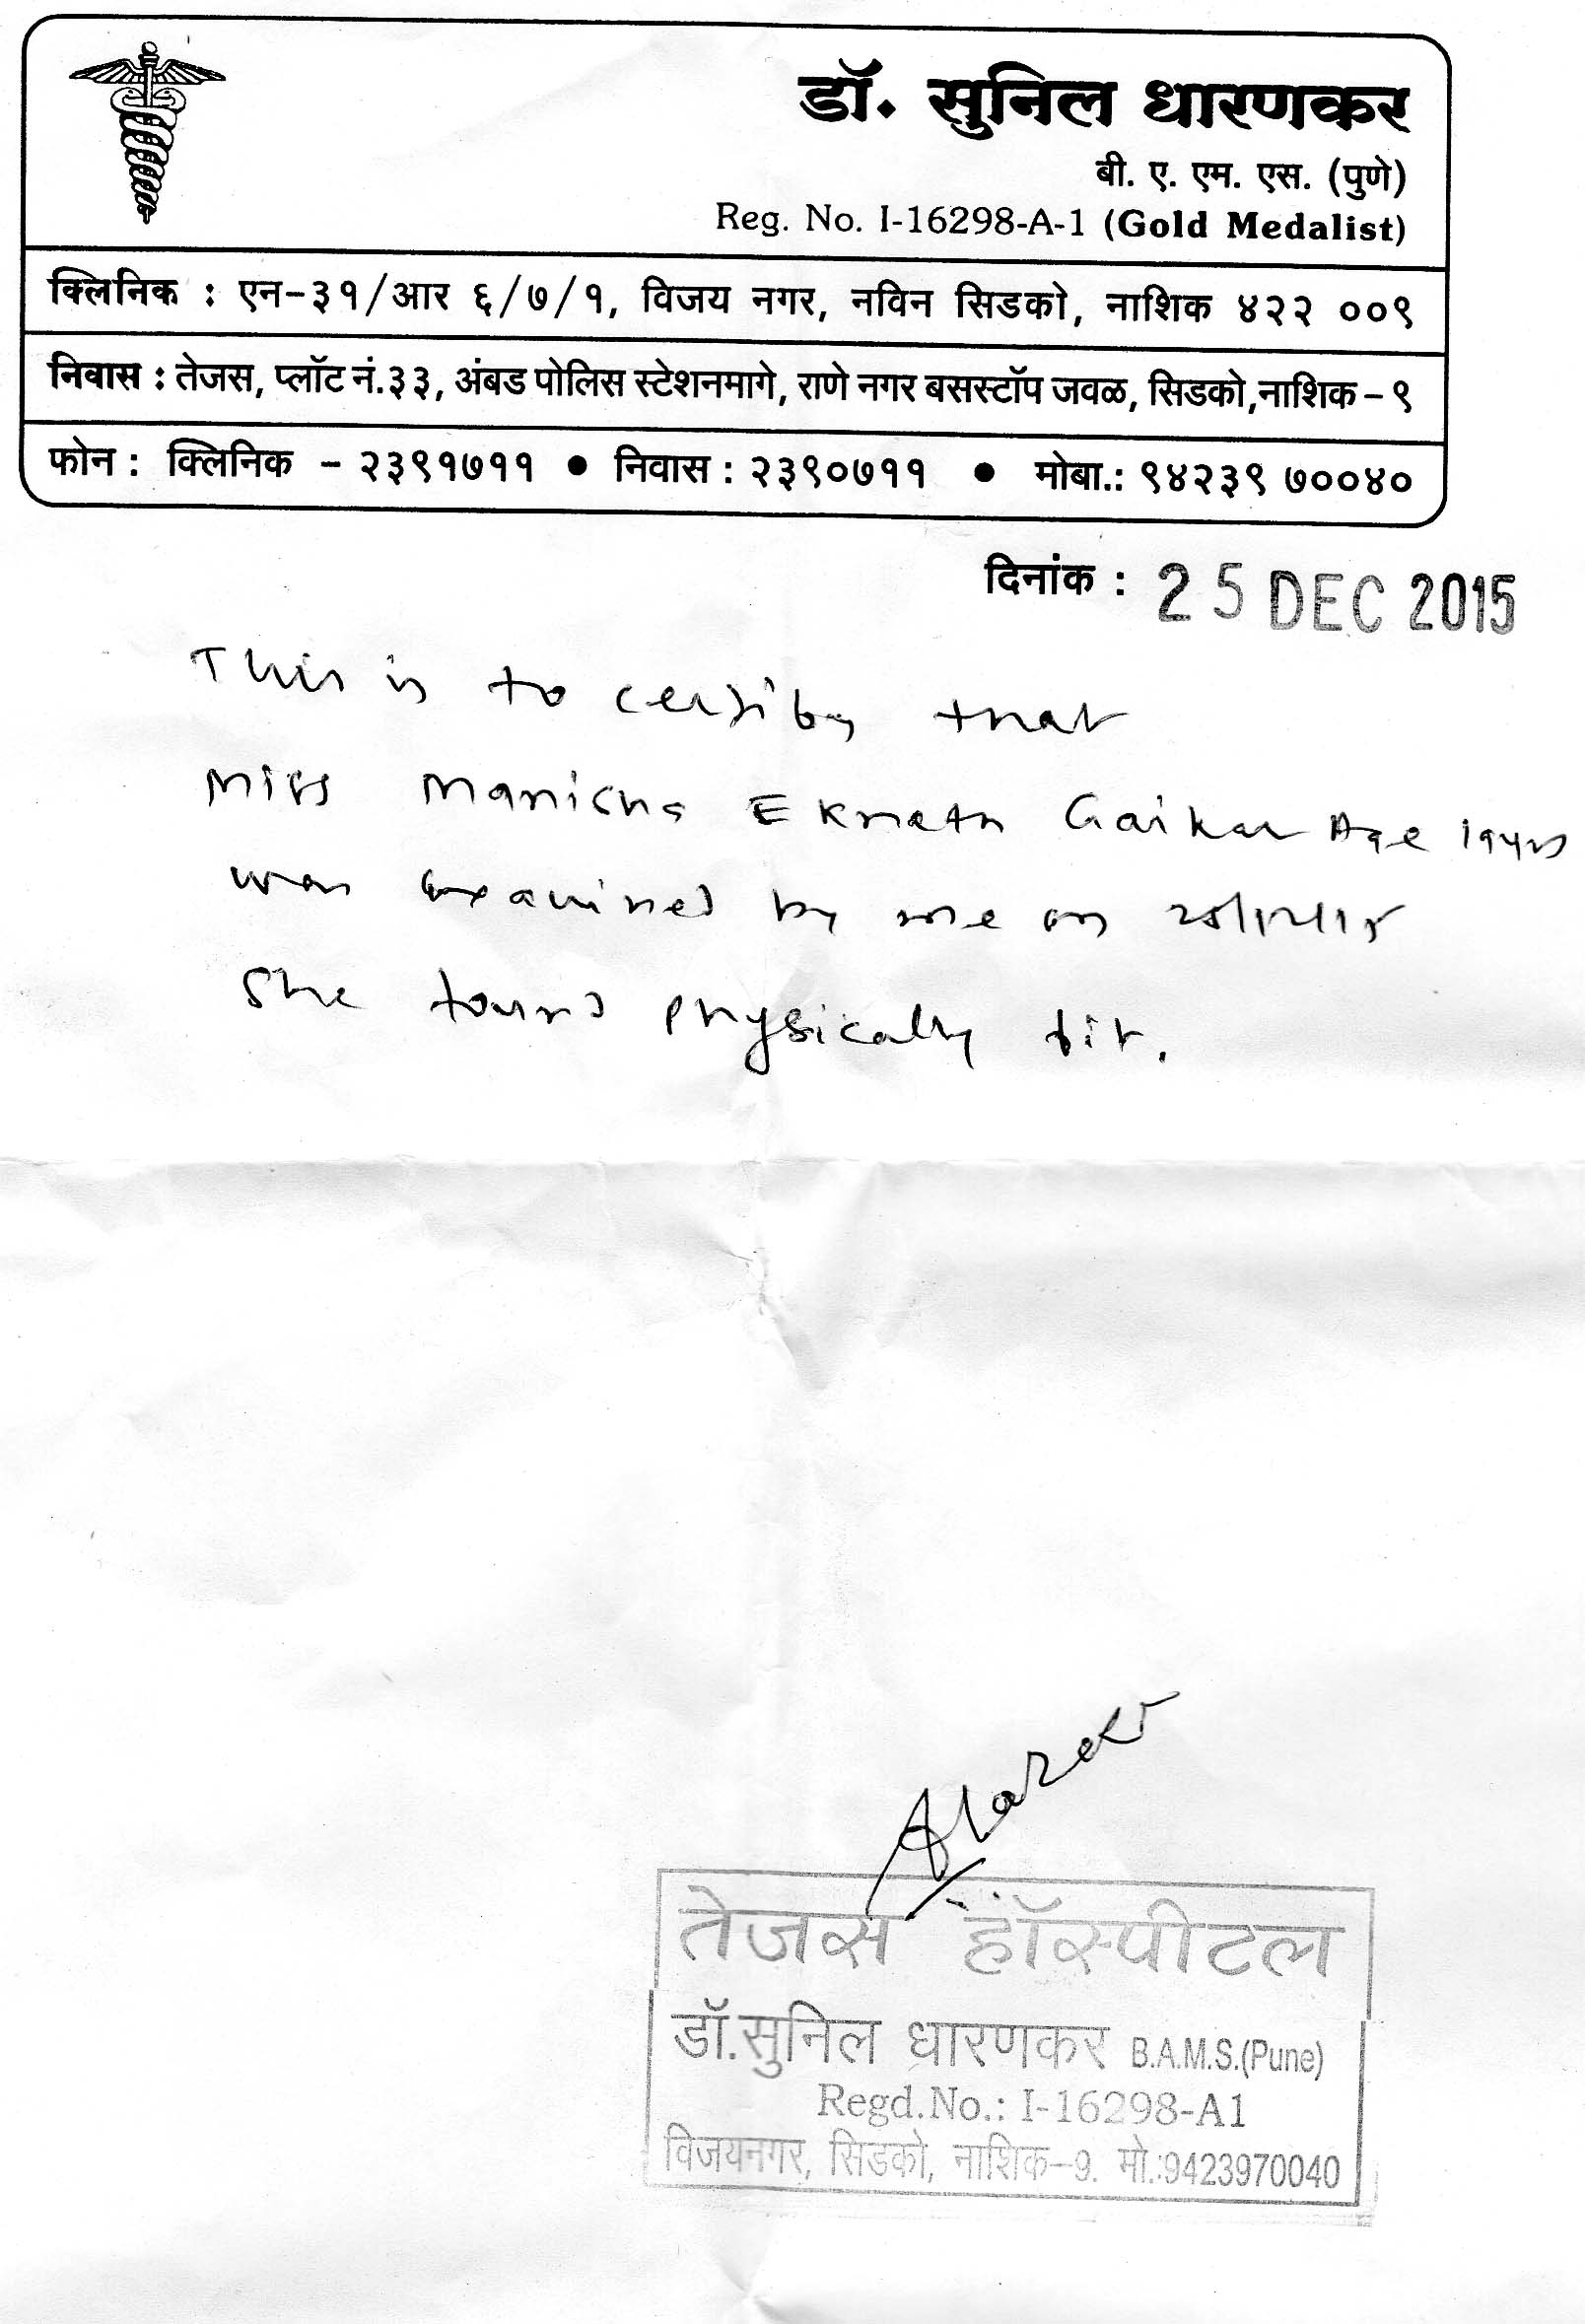 डॉ. सुनिल धारणकर
बी. ए. एम. एस. (पुणे)
Reg. No. I-16298-A-1 (Gold Medalist)
क्लिनिक : एन-३१/आर ६/७/१, विजय नगर, नविन सिडको, नाशिक ४२२ ००९
निवास : तेजस, प्लॉट नं.३३, अंबड पोलिस स्टेशनमागे, राणे नगर बसस्टॉप जवळ, सिडको,नाशिक - ९
फोन : क्लिनिक - २३९१७११ ● निवास : २३९०७११ ● मोबा.: ९४२३९ ७००४०
दिनांक : 25 DEC 2015
This is to certify that
Miss Manisha Eknath Gaikar Age 19yrs
was examined by me on
She found physically fit.
तेजस हॉस्पीटल
डॉ.सुनिल धारणकर B.A.M.S.(Pune)
Regd.No.: I-16298-A1
विजयनगर, सिडको, नाशिक-9. मो.:9423970040